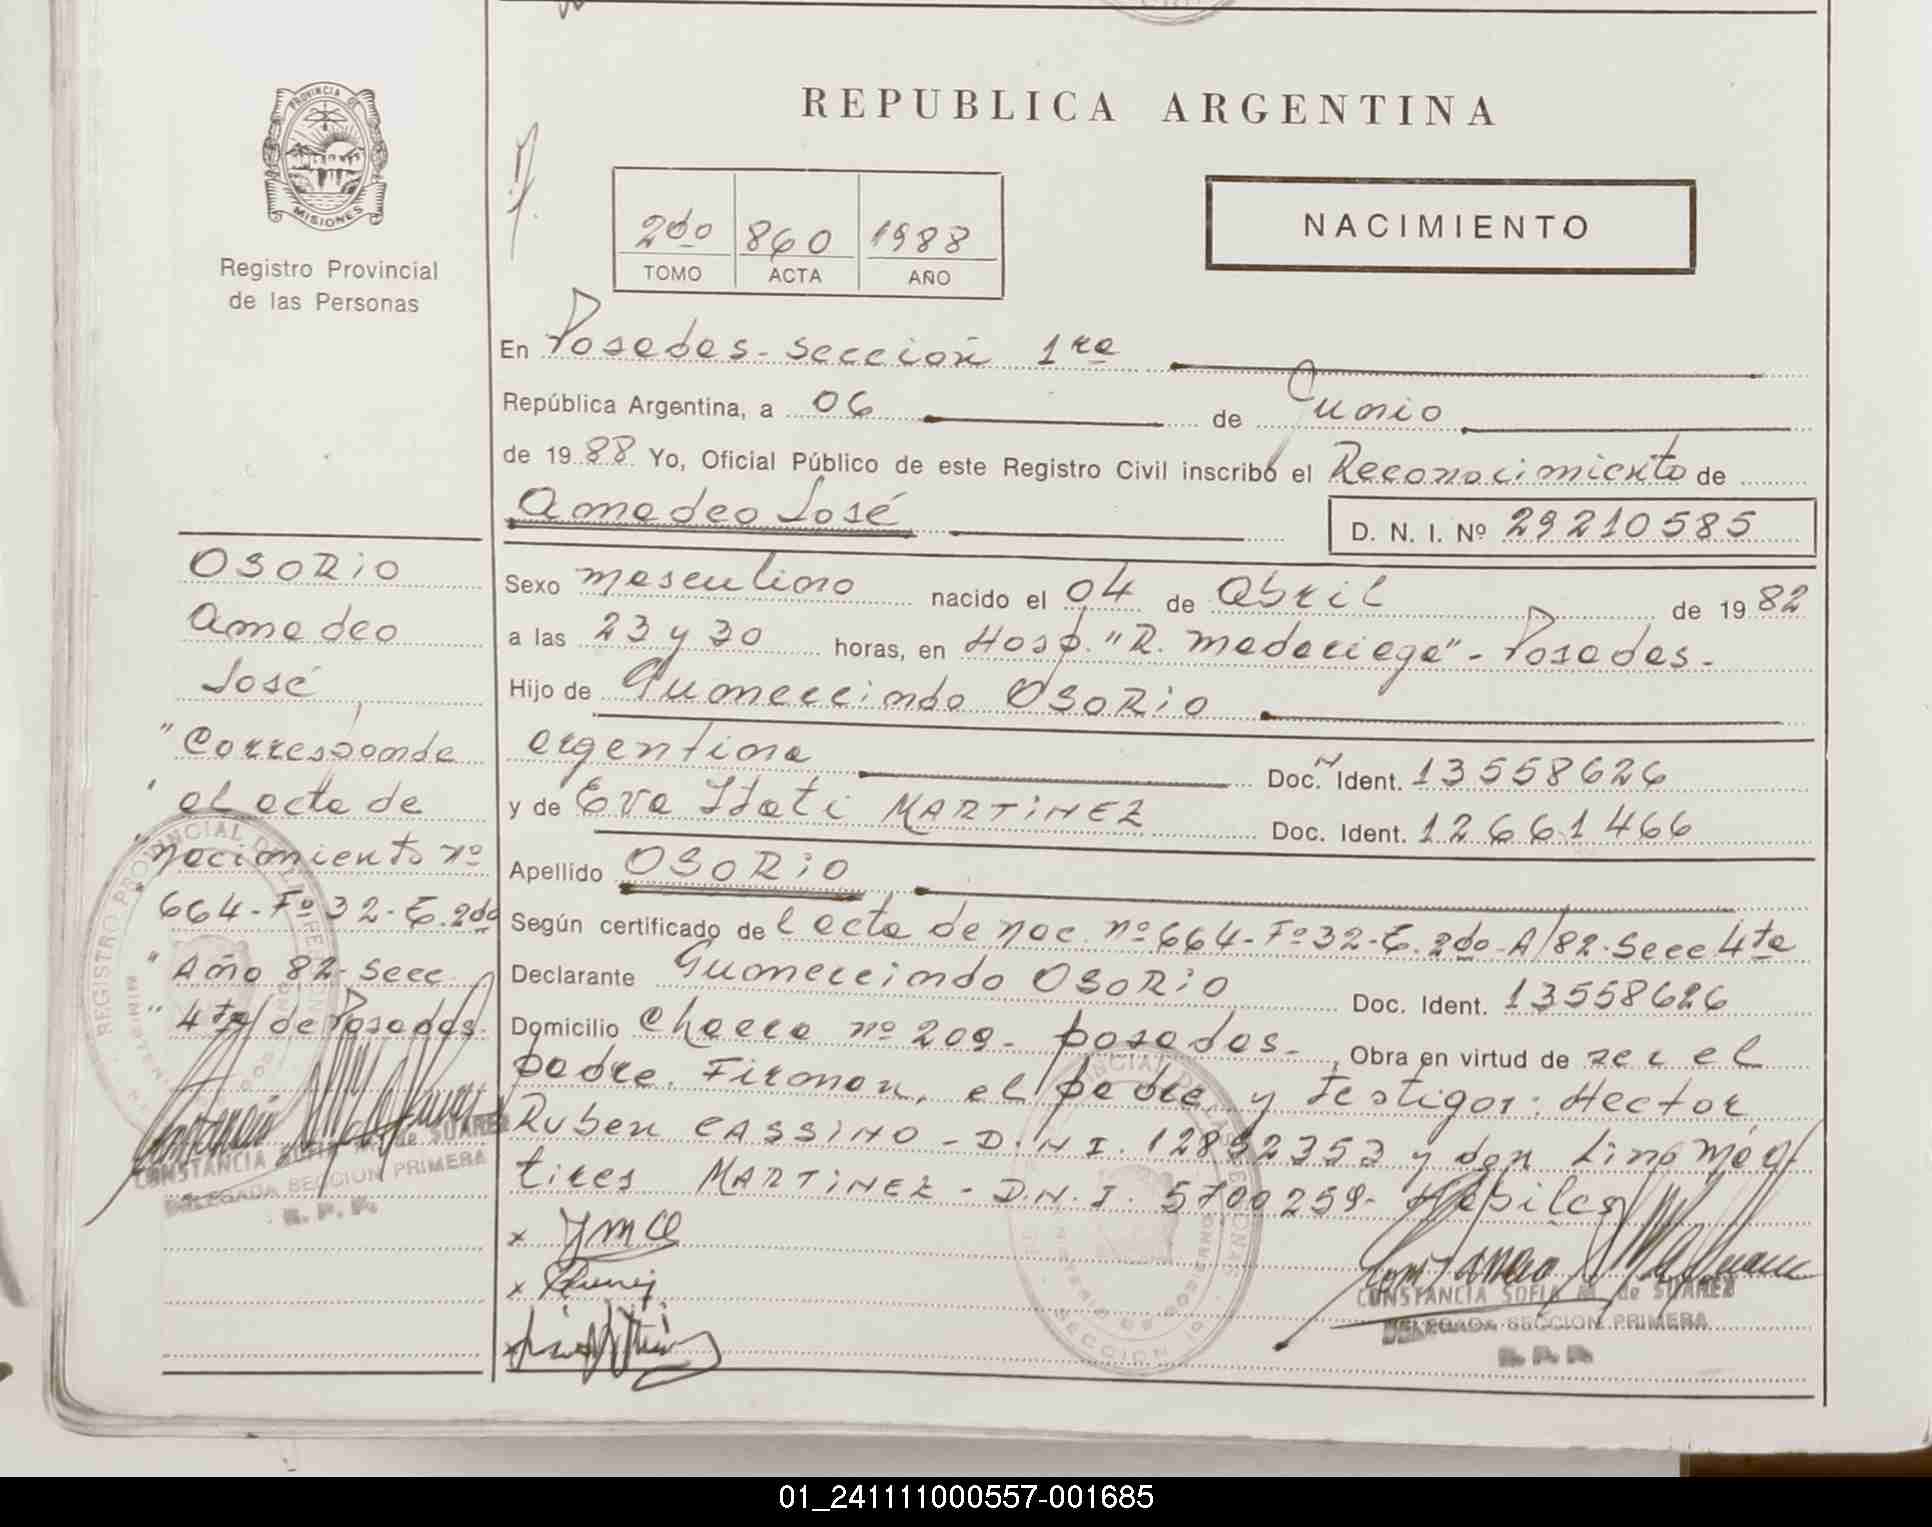 PROVINCIA DE
MISIONES
Registro Provincial
de las Personas
OSORIO
Amadeo
José
"Corresponde
" al acta de
" nacimiento nº
664-Fº32-T.2do
" Año 82-Secc.
" 4ta/ de Posadas.
CONSTANCIA SOFIA M. de SUAREZ
DELEGADA SECCION PRIMERA
R. P. P.
REPUBLICA ARGENTINA
2do 860 1988
TOMO ACTA AÑO
NACIMIENTO
En Posadas-sección 1ra
República Argentina, a 06 de Junio
de 1988 Yo, Oficial Público de este Registro Civil inscribo el Reconocimiento de
Amadeo José D. N. I. Nº 29210585
Sexo masculino nacido el 04 de Abril de 1982
a las 23 y 30 horas, en Hosp. "R. Madariaga"-Posadas-
Hijo de Gumercindo OSORIO
argentina Doc. Ident. 13558626
y de Eva Itati MARTINEZ Doc. Ident. 12661466
Apellido OSORIO
Según certificado de l acta de nac. nº664-Fº32-T.2do-A/82-Secc 4ta
Declarante Gumercindo OSORIO Doc. Ident. 13558626
Domicilio Chacra nº 209- posadas-, Obra en virtud de ser el
padre. Firman, el padre y Testigos: Hector
Ruben CASSINO-D.N.I. 12852353 y don Lino Már
tires MARTINEZ-D.N.I. 5700259- Hábiles
CONSTANCIA SOFIA M. de SUAREZ
DELEGADA SECCION PRIMERA
R. P. P.
01_241111000557-001685